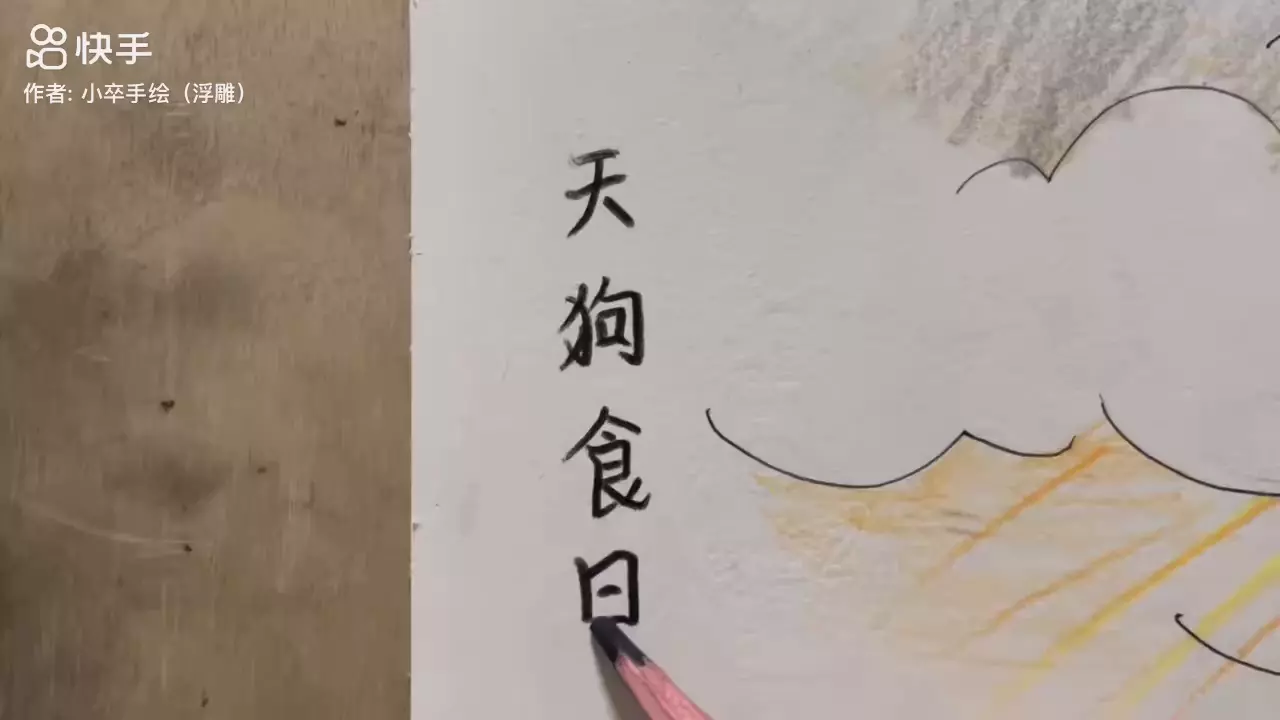 快手
作者: 小卒手绘（浮雕）
天狗食日